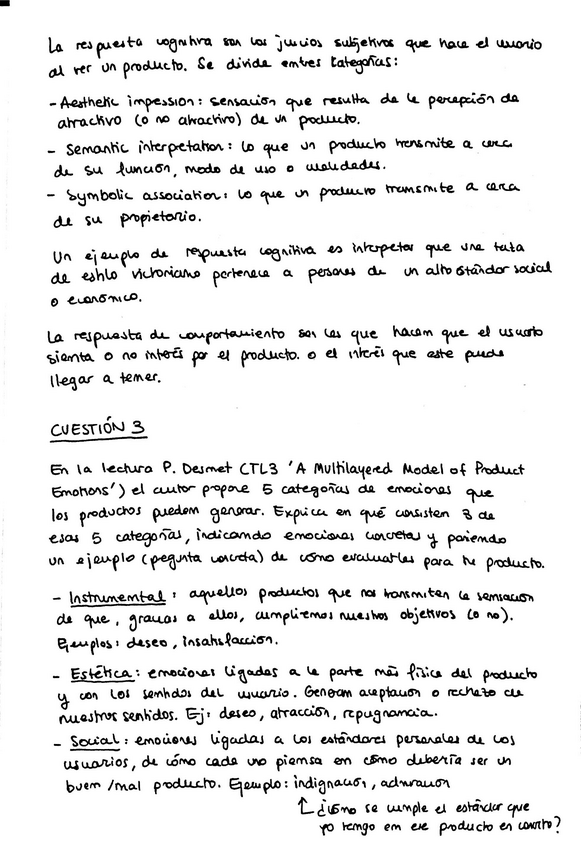 La respuesta cognitiva son los juicios subjetivos que hace el usuario
al ver un producto. Se divide en tres categorías:
- Aesthetic impession: sensación que resulta de la percepción de
atractivo (o no atractivo) de un producto.
- Semantic interpretation: lo que un producto transmite a cerca
de su función, modo de uso o cualidades.
- Symbolic association: lo que un producto transmite a cerca
de su propietario.
Un ejemplo de respuesta cognitiva es interpretar que una taza
de estilo victoriano pertenece a personas de un alto stándar social
o económico.
La respuesta de comportamiento son las que hacen que el usuario
sienta o no interés por el producto. o el interés que este puede
llegar a temer.
CUESTIÓN 3
En la lectura P. Desmet CTL3 'A Multilayered Model of Product
Emotions') el autor propone 5 categorías de emociones que
los productos pueden generar. Explica en qué consisten 3 de
esas 5 categorías, indicando emociones concretas y poniendo
un ejemplo (pegunta concreta) de cómo evaluarlas para tu producto.
- Instrumental: aquellos productos que nos transmiten la sensación
de que, gracias a ellos, cumpliremos nuestros objetivos (o no).
Ejemplos: deseo, insatisfacción.
- Estética: emociones ligadas a la parte más física del producto
y con los sentidos del usuario. Generan aceptación o rechazo de
nuestros sentidos. Ej: deseo, atracción, repugnancia.
- Social: emociones ligadas a los estándares personales de los
usuarios, de cómo cada uno piensa en cómo debería ser un
buen/mal producto. Ejemplo: indignación, admiración
↑ ¿cómo se cumple el estándar que
yo tengo en ese producto en concreto?